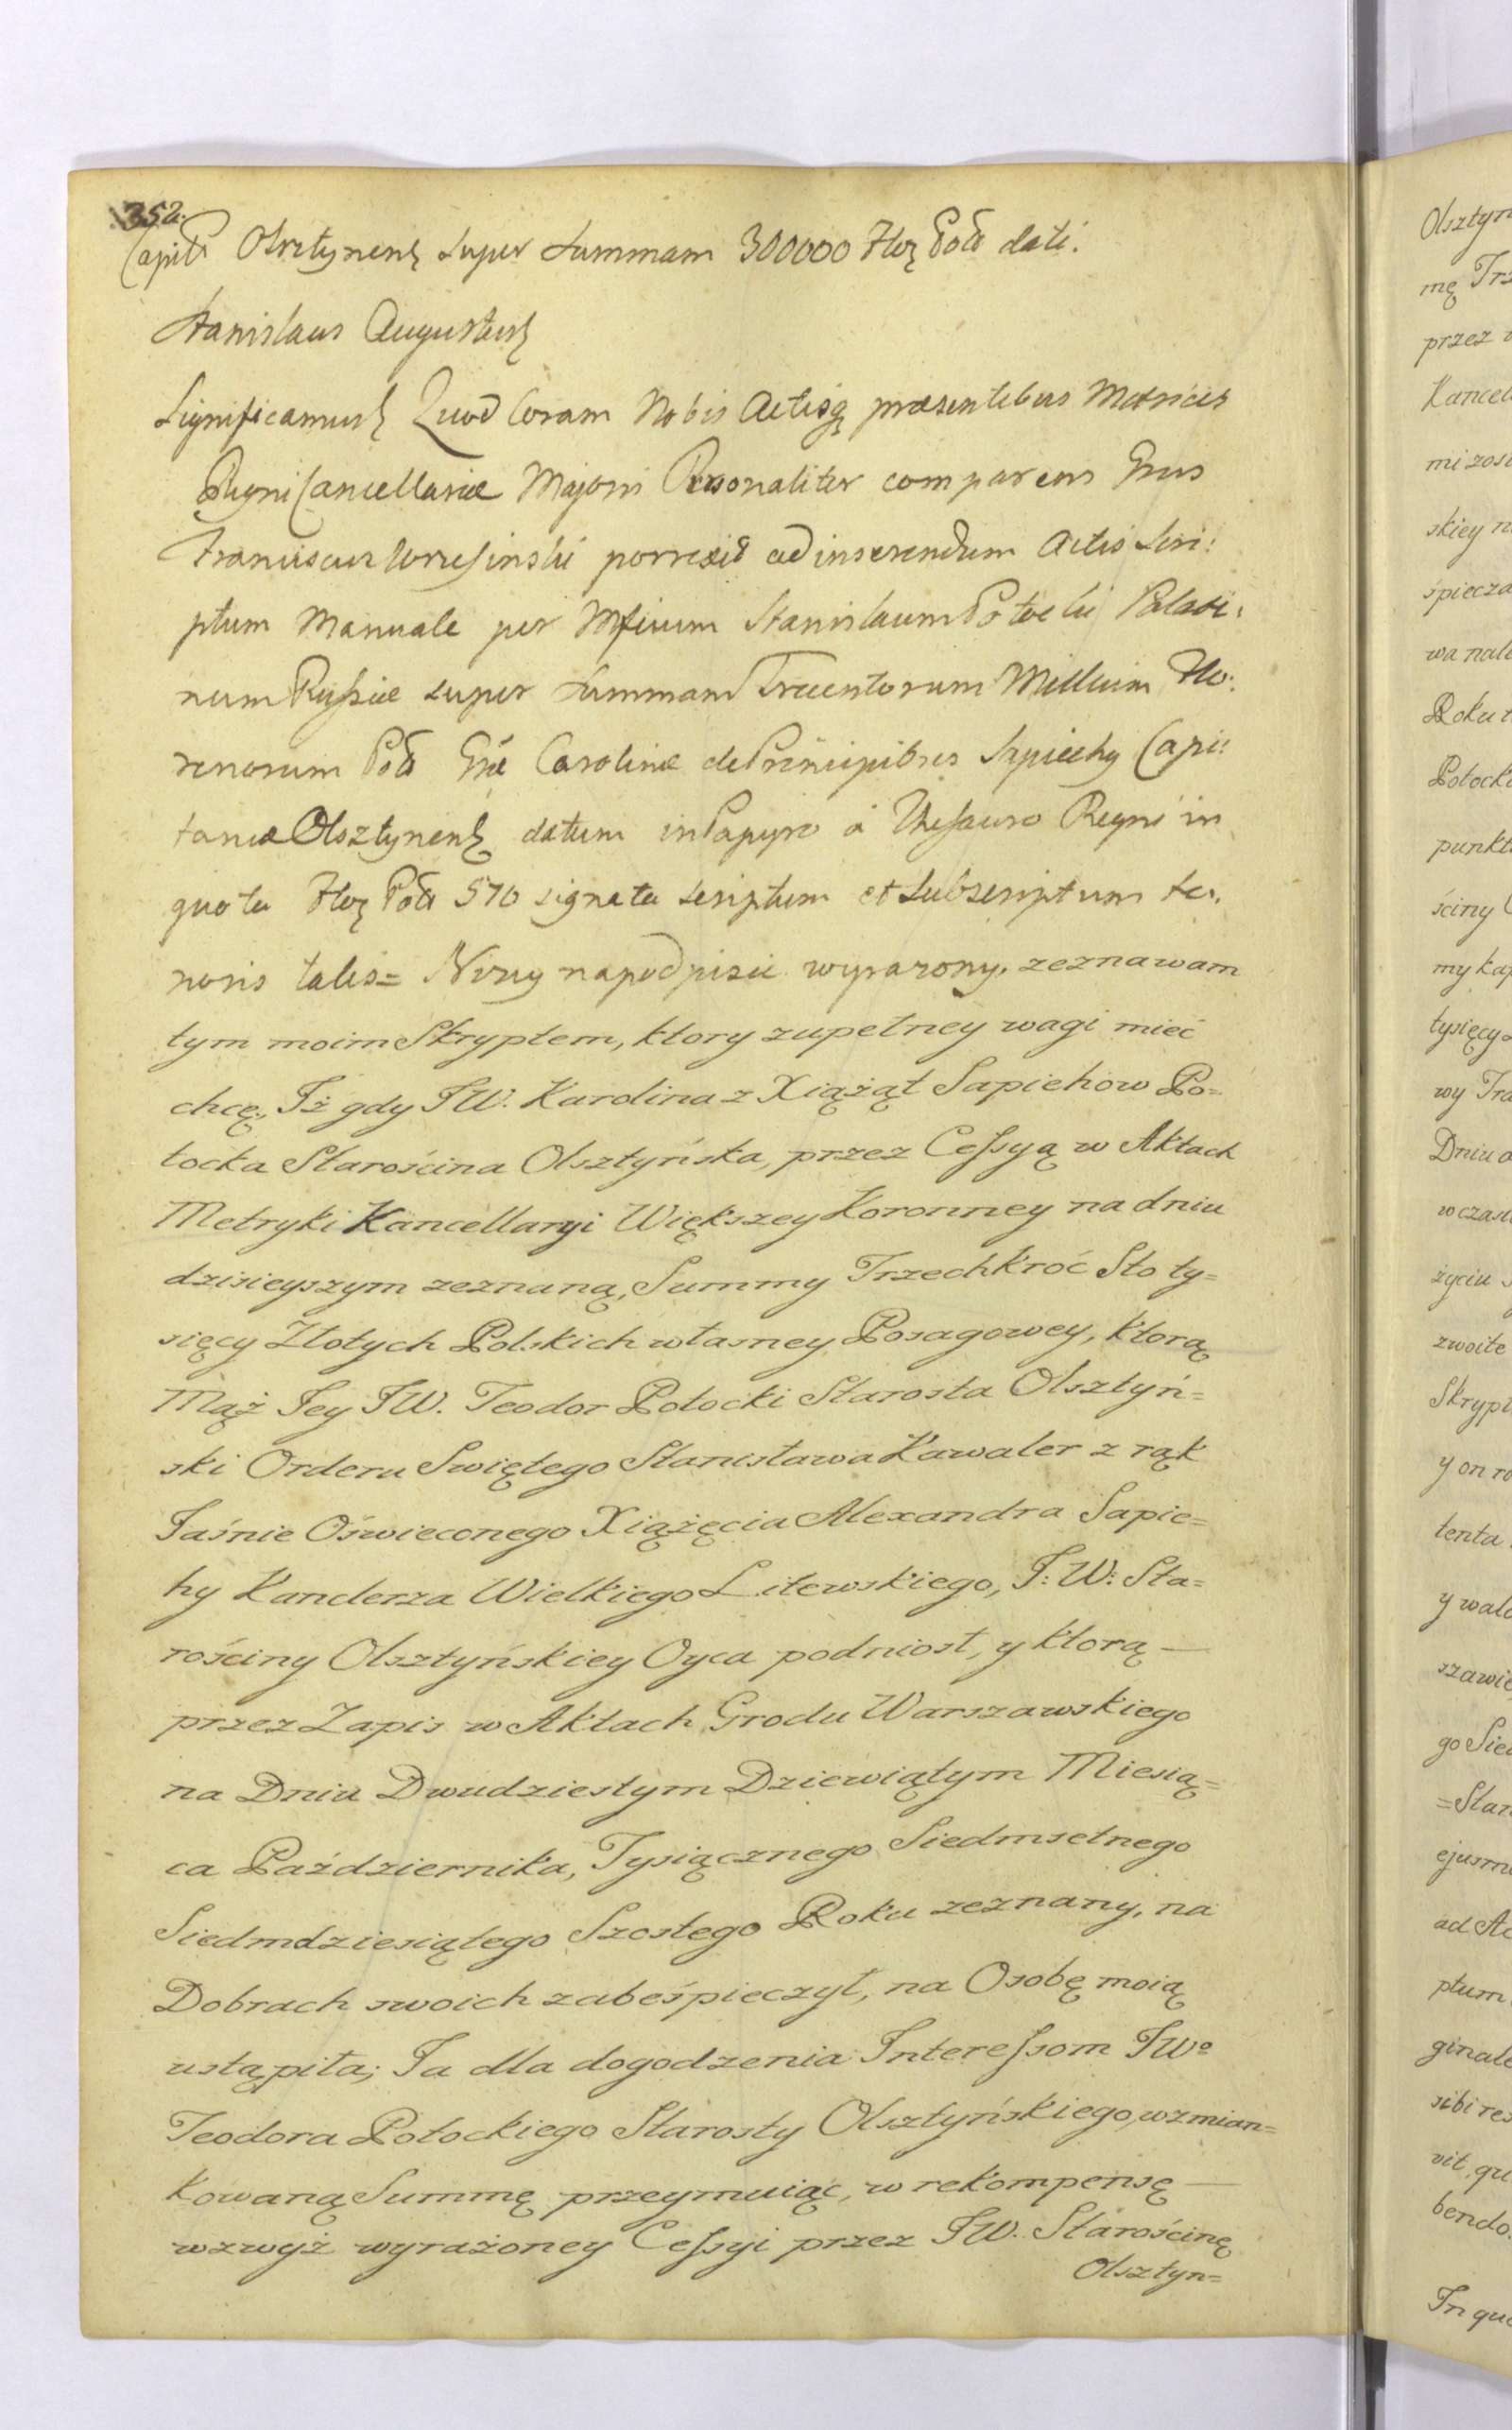 352.
Capitt Olsztynens super Summam 300000 Flor Poll dati.
Stanislaus Augustus
Significamus Quod Coram Nobis Actisq praesentibus Metrices
Regni Cancellariae Majoris Personaliter comparens Grus
Franciscus porrexit ad inserendum Actis Scri:
ptum Manuale per Mficum Stanislaum Potocki Palati:
num Russiae super Summam Trecentorum Millium Flo:
renorum Poll Carolinae de Principibus Sapiechy Capi:
taneae Olsztynens datum in Papyro à Thesauro Regni in
quota Flor Poll 570 signata scriptum et subscriptum te:
noris talis= Nizey na podpisie wyrazony, zeznawam
tym moim Skryptem, ktory zupełney wagi mieć
chcę, Iż gdy JW. Karolina z Xiążąt Sapiehow Po=
tocka Starościna Olsztyńska, przez Cessyą w Aktach
Metryki Kancellaryi Większey Koronney na dniu
dzisieyszym zeznaną, Summy Trzechkroć Sto ty=
sięcy Złotych Polskich własney Posagowey, ktorą
Mąż Jey JW. Teodor Potocki Starosta Olsztyń=
ski Orderu Swiętego Stanisława Kawaler z rąk
Jaśnie Oświeconego Xiążęcia Alexandra Sapie=
hy Kanclerza Wielkiego Litewskiego, J: W: Sta=
rościny Olsztyńskiey Oyca podniosł, y ktorą —
przez Zapis w Aktach Grodu Warszawskiego
na Dniu Dwudziestym Dziewiątym Miesią=
ca Października, Tysiącznego Siedmsetnego
Siedmdziesiątego Szostego Roku zeznany, na
Dobrach swoich zabeśpieczył, na Osobę moią
ustąpiła; Ja dla dogodzenia Interessom JWo
Teodora Potockiego Starosty Olsztyńskiego, wzmian=
kowaną Summę przeymuiąc, w rekompensę —
wzwyż wyrażoney Cessyi przez JW. Starościnę
Olsztyn=